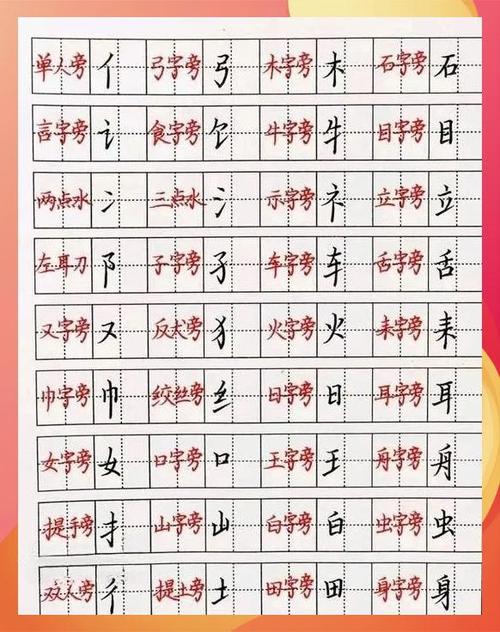 单人旁 亻 弓字旁 弓 木字旁 木 石字旁 石
言字旁 讠 食字旁 饣 牛字旁 牛 目字旁 目
两点水 冫 三点水 氵 示字旁 礻 立字旁 立
左耳刀 阝 子字旁 孑 车字旁 车 舌字旁 舌
又字旁 又 反犬旁 犭 火字旁 火 耒字旁 耒
巾字旁 巾 绞丝旁 纟 日字旁 日 耳字旁 耳
女字旁 女 口字旁 口 王字旁 王 舟字旁 舟
提手旁 扌 山字旁 山 白字旁 白 虫字旁 虫
双人旁 彳 提土旁 土 田字旁 田 身字旁 身